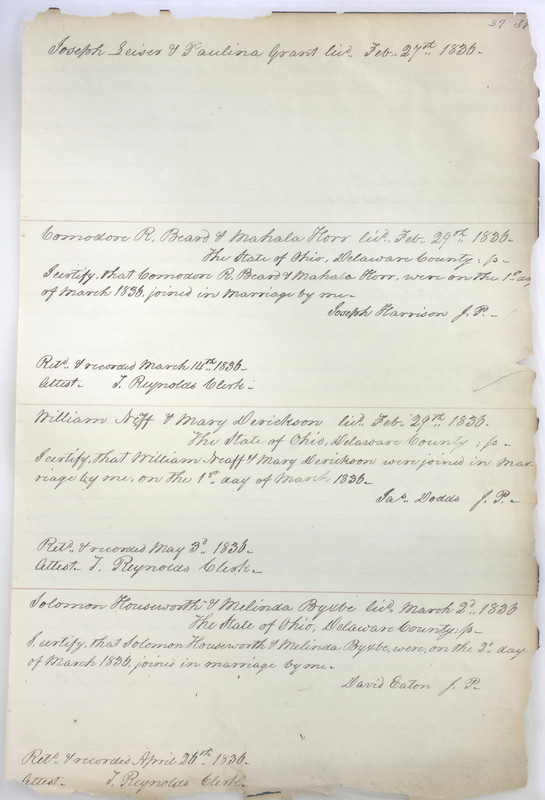 37
Joseph Leiser & Paulina Grant licd. Feb. 27th. 1836.
Comodore R. Beard & Mahala Horr licd. Feb. 29th. 1836.
The State of Ohio, Delaware County: ss.
I certify, that Comodore R. Beard & Mahala Horr, were on the 1st. day
of March 1836, joined in marriage by me.
Joseph Harrison J. P.
Retd. & recorded March 14th. 1836.
Attest. T. Reynolds Clerk.
William Neff & Mary Derickson licd. Feb. 29th. 1836.
The State of Ohio, Delaware County: ss.
I certify, that William Neaff & Mary Derickson were joined in mar-
riage by me, on the 1st. day of March 1836.
Jas. Dodds J. P.
Retd. & recorded May 3d. 1836.
Attest. T. Reynolds Clerk.
Solomon Houseworth & Melinda Byxbe licd. March 2d. 1836
The State of Ohio, Delaware County: ss.
I certify, that Solomon Houseworth & Melinda Byxbe, were, on the 2d. day
of March 1836, joined in marriage by me.
David Eaton J. P.
Retd. & recorded April 26th. 1836.
Attest. T. Reynolds Clerk.